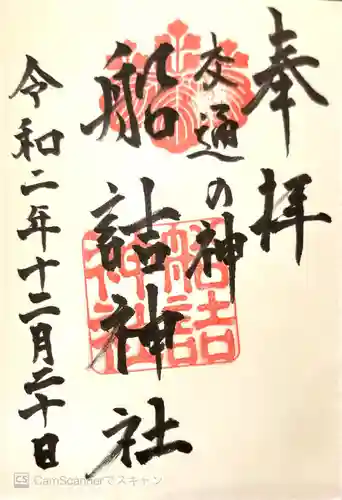 奉拝
交通の神
船詰神社
令和二年十二月二十日
船詰
神社
CS CamScannerでスキャン